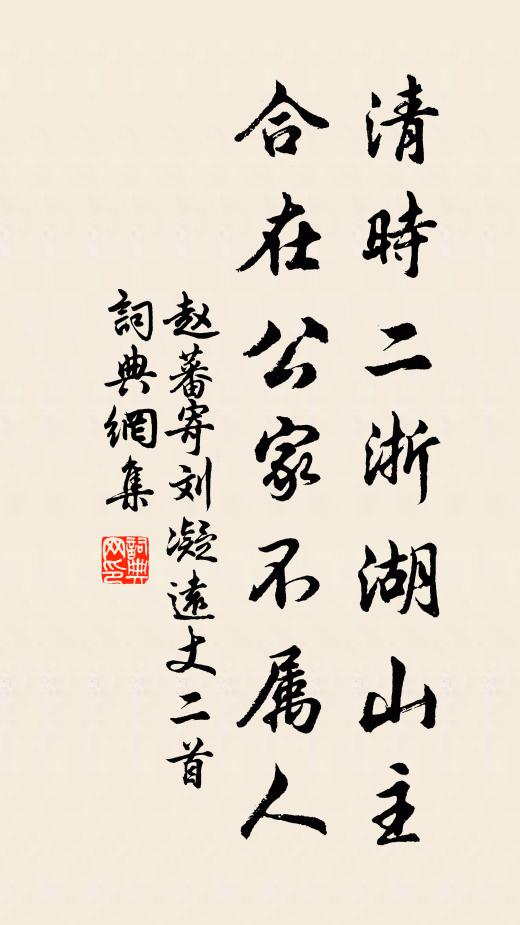 清時二浙湖山主
合在公家不属人
赵蕃寄刘凝遠丈二首
詞典網集
詞典网印